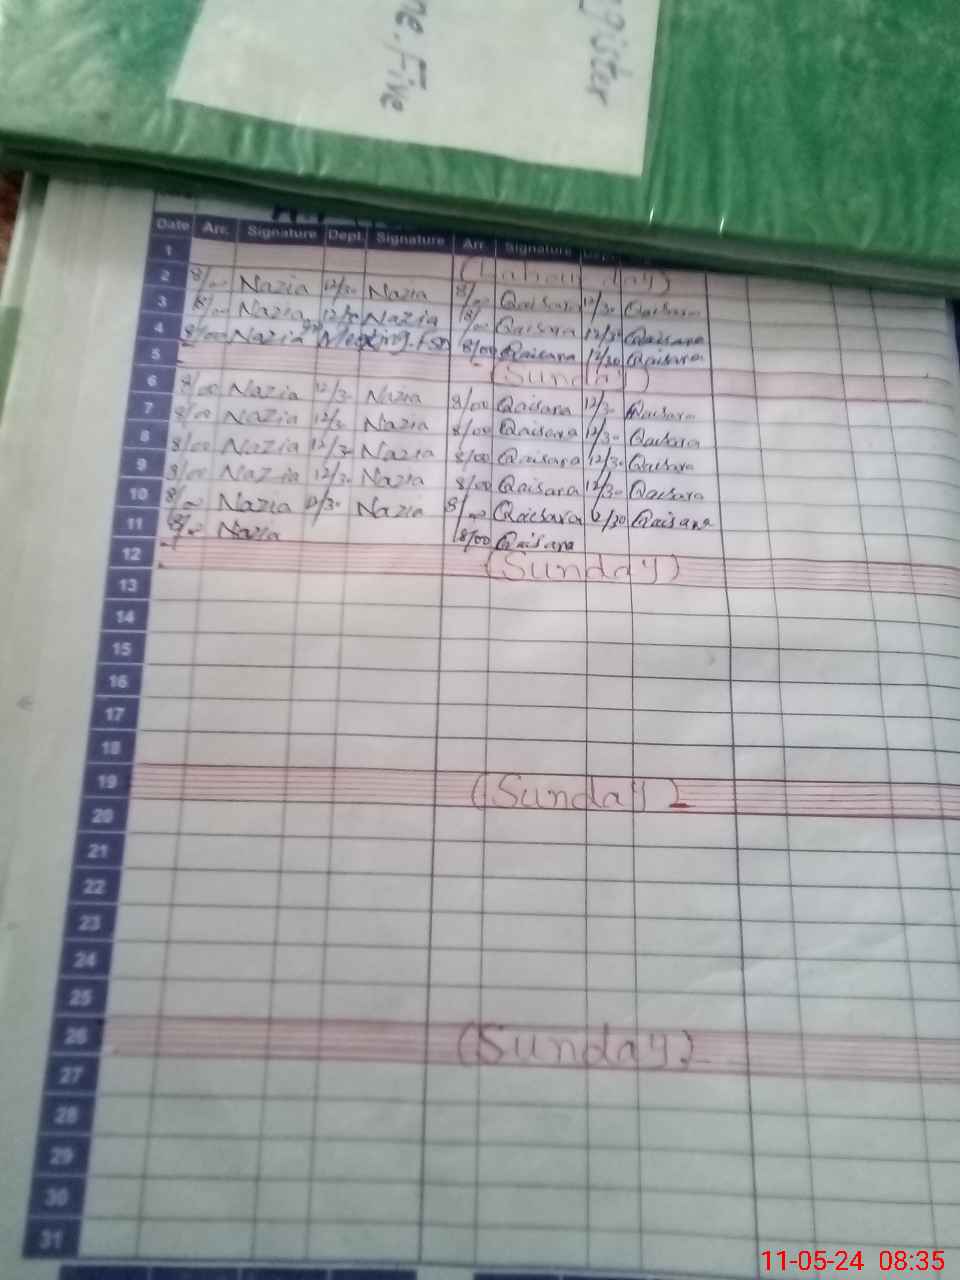 gister
ne. Five
Date Arr. Signature Dept. Signature Arr. Signature
1 (Labour day)
2 8/00 Nazia 12/30 Nazia 8/00 Qaisara 12/30 Qaisara
3 8/00 Nazia 12/30 Nazia 8/00 Qaisara 12/30 Qaisara
4 8/00 Nazia Meeting 8/00 Qaisara 12/30 Qaisara
5 (Sunday)
6 8/00 Nazia 12/30 Nazia 8/00 Qaisara 12/30 Qaisara
7 8/00 Nazia 12/30 Nazia 8/00 Qaisara 12/30 Qaisara
8 8/00 Nazia 12/30 Nazia 8/00 Qaisara 12/30 Qaisara
9 8/00 Nazia 12/30 Nazia 8/00 Qaisara 12/30 Qaisara
10 8/00 Nazia 12/30 Nazia 8/00 Qaisara 12/30 Qaisara
11 8/00 Nazia 8/00 Qaisara
12 (Sunday)
13
14
15
16
17
18
19 (Sunday)
20
21
22
23
24
25
26 (Sunday)
27
28
29
30
31
11-05-24 08:35